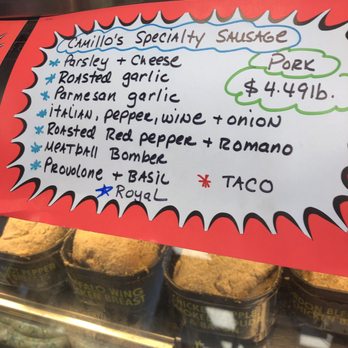 Camillo's Specialty Sausage
* Parsley + Cheese
* Roasted garlic
* Parmesan garlic
* italian, pepper, wine + onion
* Roasted Red pepper + Romano
* Meatball Bomber
* Provolone + Basil
* Royal
* TACO
Pork
$4.49 lb.
WING
BREAST